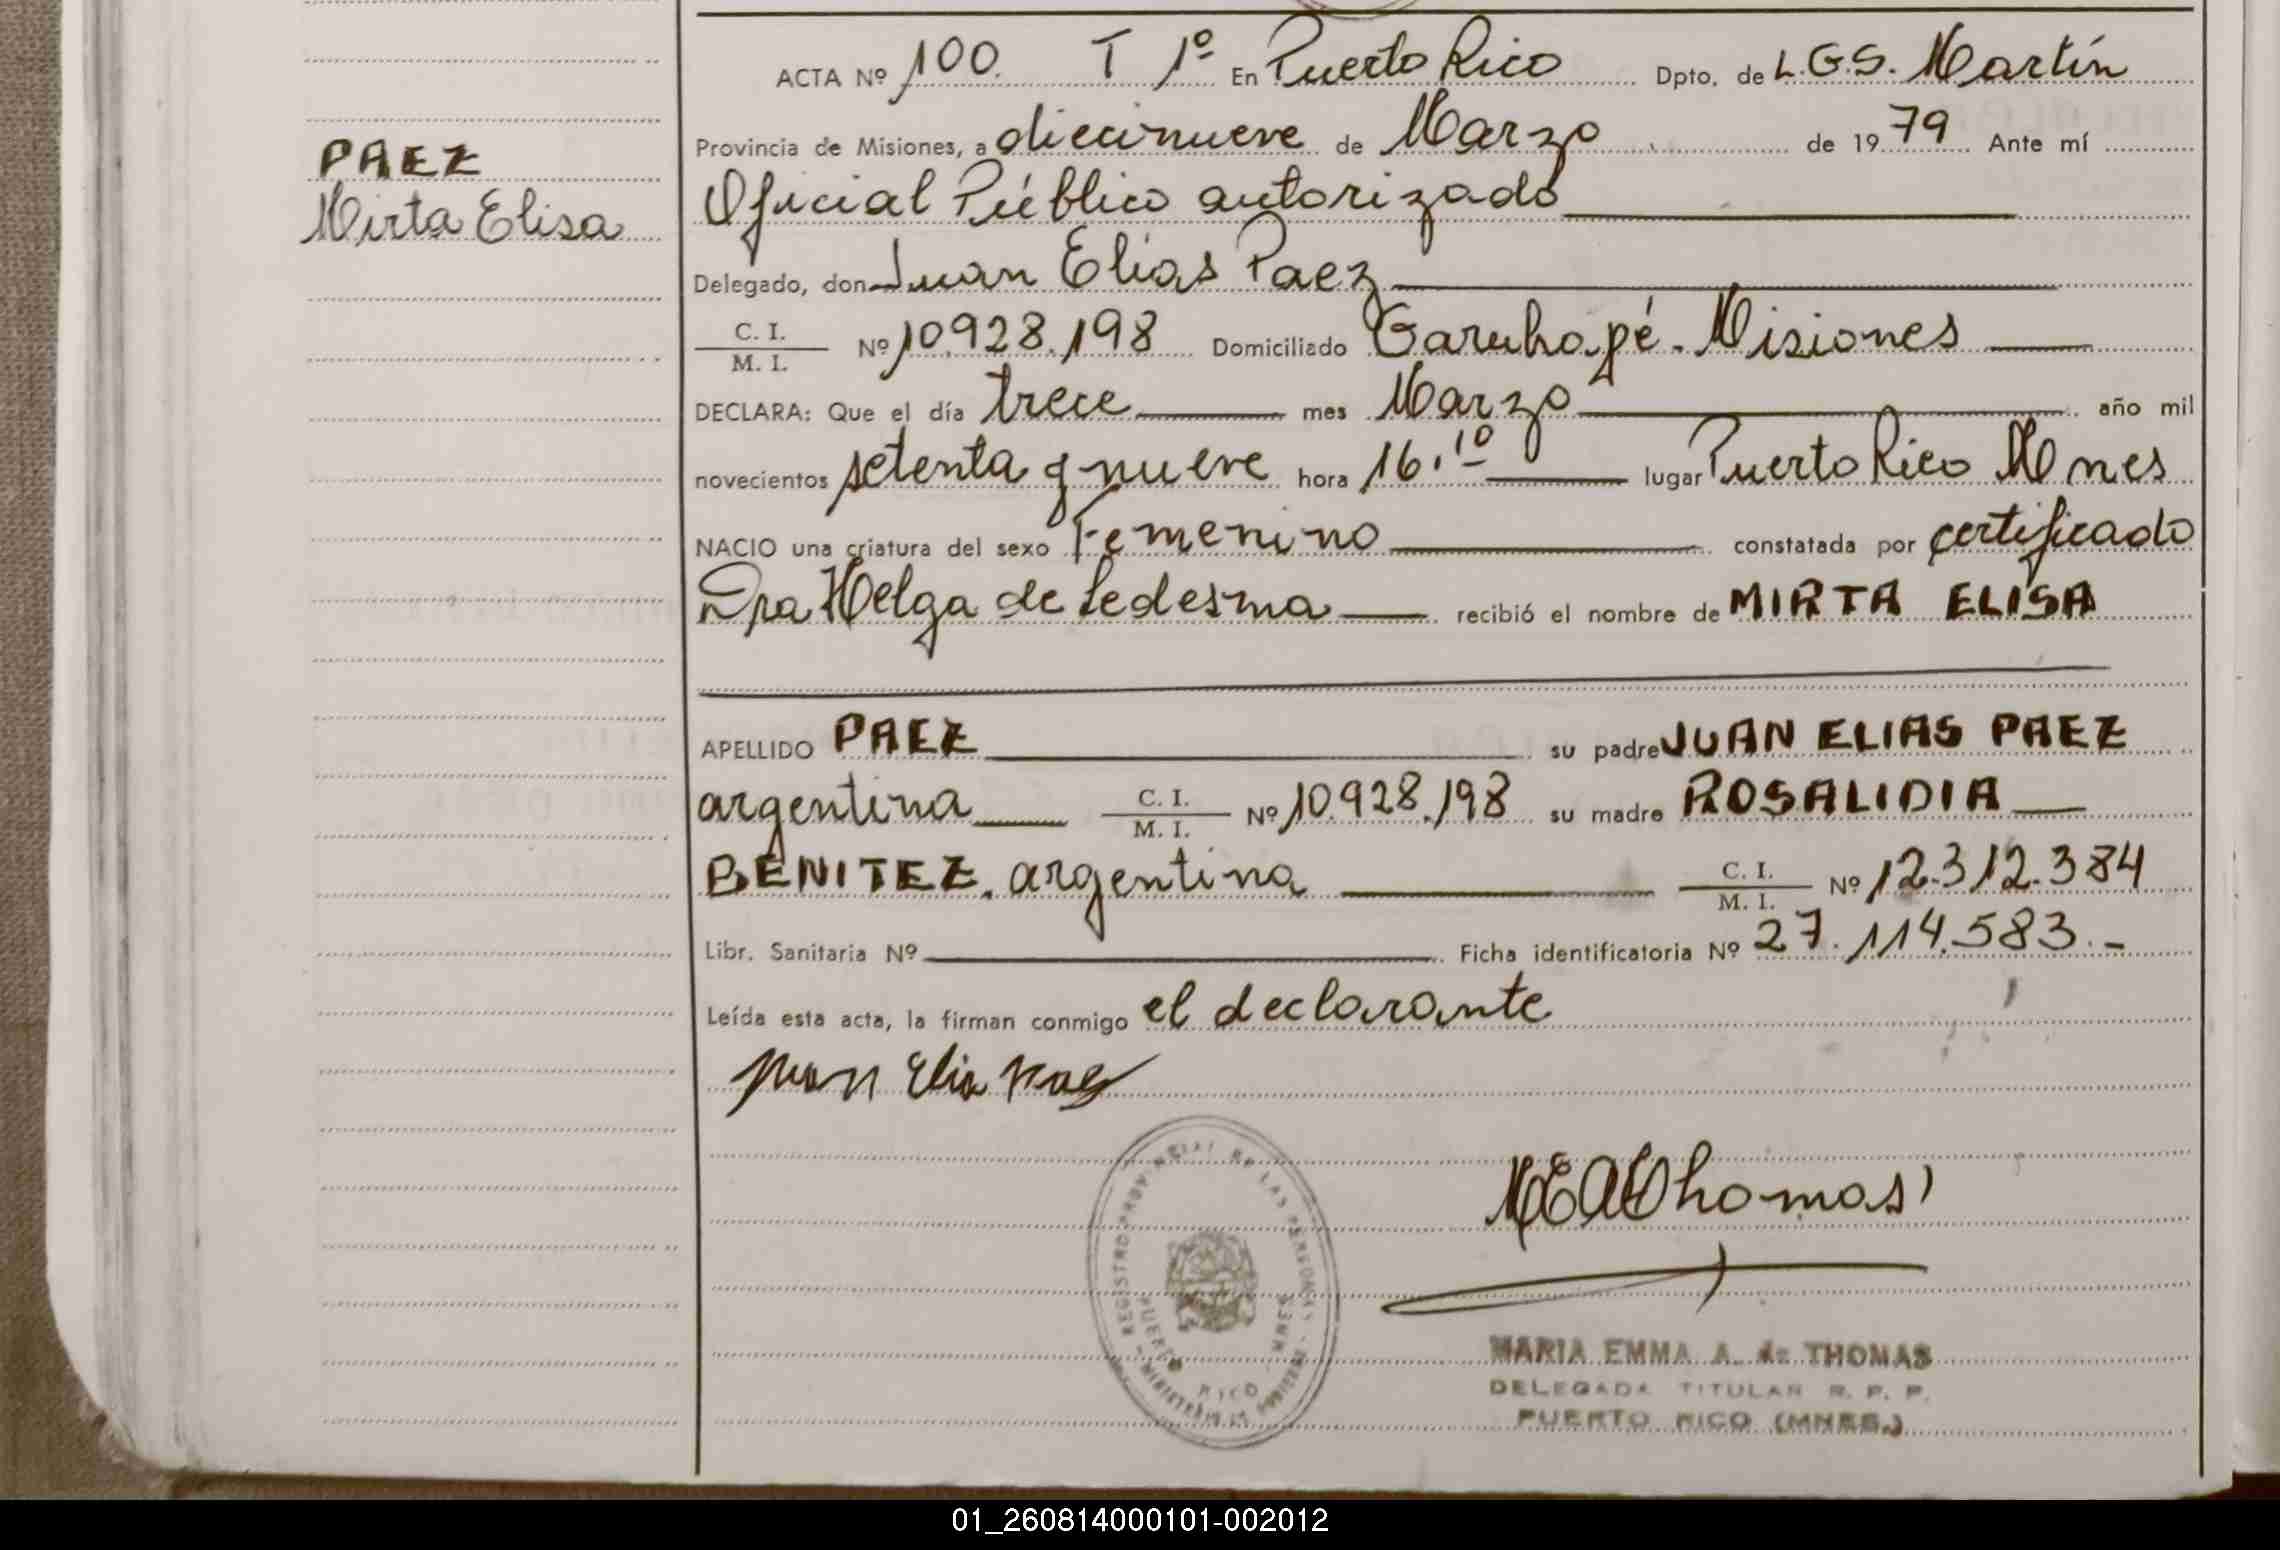 ACTA Nº 100. T 1º En Puerto Rico Dpto. de L.G.S. Martín
Provincia de Misiones, a diecinueve de Marzo de 1979 Ante mí
PAEZ
Mirta Elisa
Oficial Público autorizado
Delegado, don Juan Elias Paez
C. I.
M. I. Nº 10.928.198 Domiciliado Garuhapé - Misiones
DECLARA: Que el día trece mes Marzo año mil
novecientos setenta y nueve hora 16.10 lugar Puerto Rico Mnes
NACIO una criatura del sexo Femenino constatada por certificado
Dra Helga de Ledesma recibió el nombre de MIRTA ELISA
APELLIDO PAEZ su padre JUAN ELIAS PAEZ
argentina C. I.
M. I. Nº 10.928.198 su madre ROSALIDIA
BENITEZ. argentina C. I.
M. I. Nº 12.312.384
Libr. Sanitaria Nº Ficha identificatoria Nº 27.114.583.-
Leída esta acta, la firman conmigo el declarante
Juan Elia Paez
MEAThomas
REGISTRO PROVINCIAL DE LAS PERSONAS
PUERTO RICO - MNES.
MARIA EMMA A. de THOMAS
DELEGADA TITULAR R. P. P.
PUERTO RICO (MNES.)
01_260814000101-002012